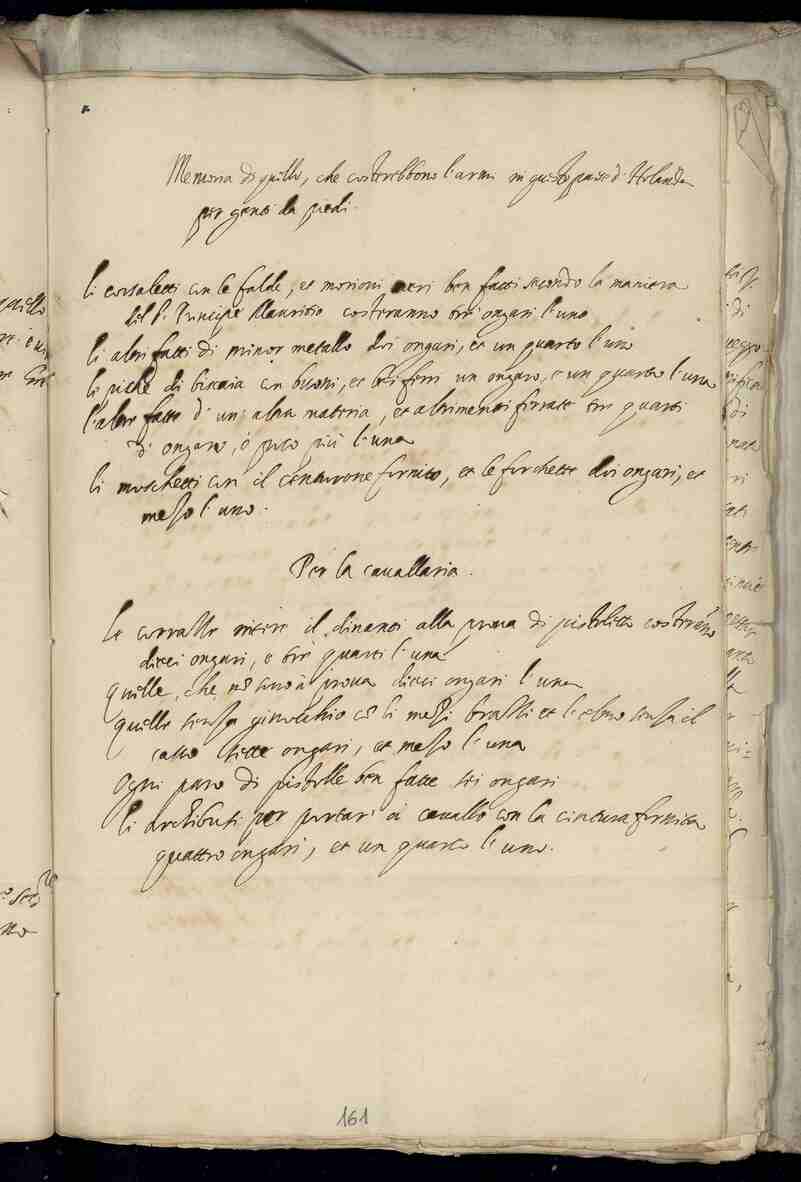 Memoria di quello, che costarebbono l'armi in questo paese d'Holanda
per genti da piedi.
li corsaletti con le falde, et morioni neri ben fatti secondo la maniera
del S. Principe Mauritio costeranno tre ongari l'uno
li altri fatti di minor metallo doi ongari, et un quarto l'uno
le piche di con et ferri un ongaro, e un quarto l'una
l'altre fatte d'un'altra materia, et altrimenti ferrate tre quarti
d'ongaro, ò poco più l'una
li moschetti con il centurone fornito, et le forchette doi ongari, et
mezo l'uno.
Per la cavallaria.
Le corazze intiere il dinanzi alla prova di pistoletto costeranno
dieci ongari, e tre quarti l'una
quelle, che nõ sono à prova dieci ongari l'una
quelle senza ginocchio cõ li mezi brazzi et l'elmo senza il
sette ongari, et mezo l'una
Ogni paro di pistolle ben fatte sei ongari
li archibusi per portar à cavallo con la cintura fornita
quattro ongari, et un quarto l'uno.
161